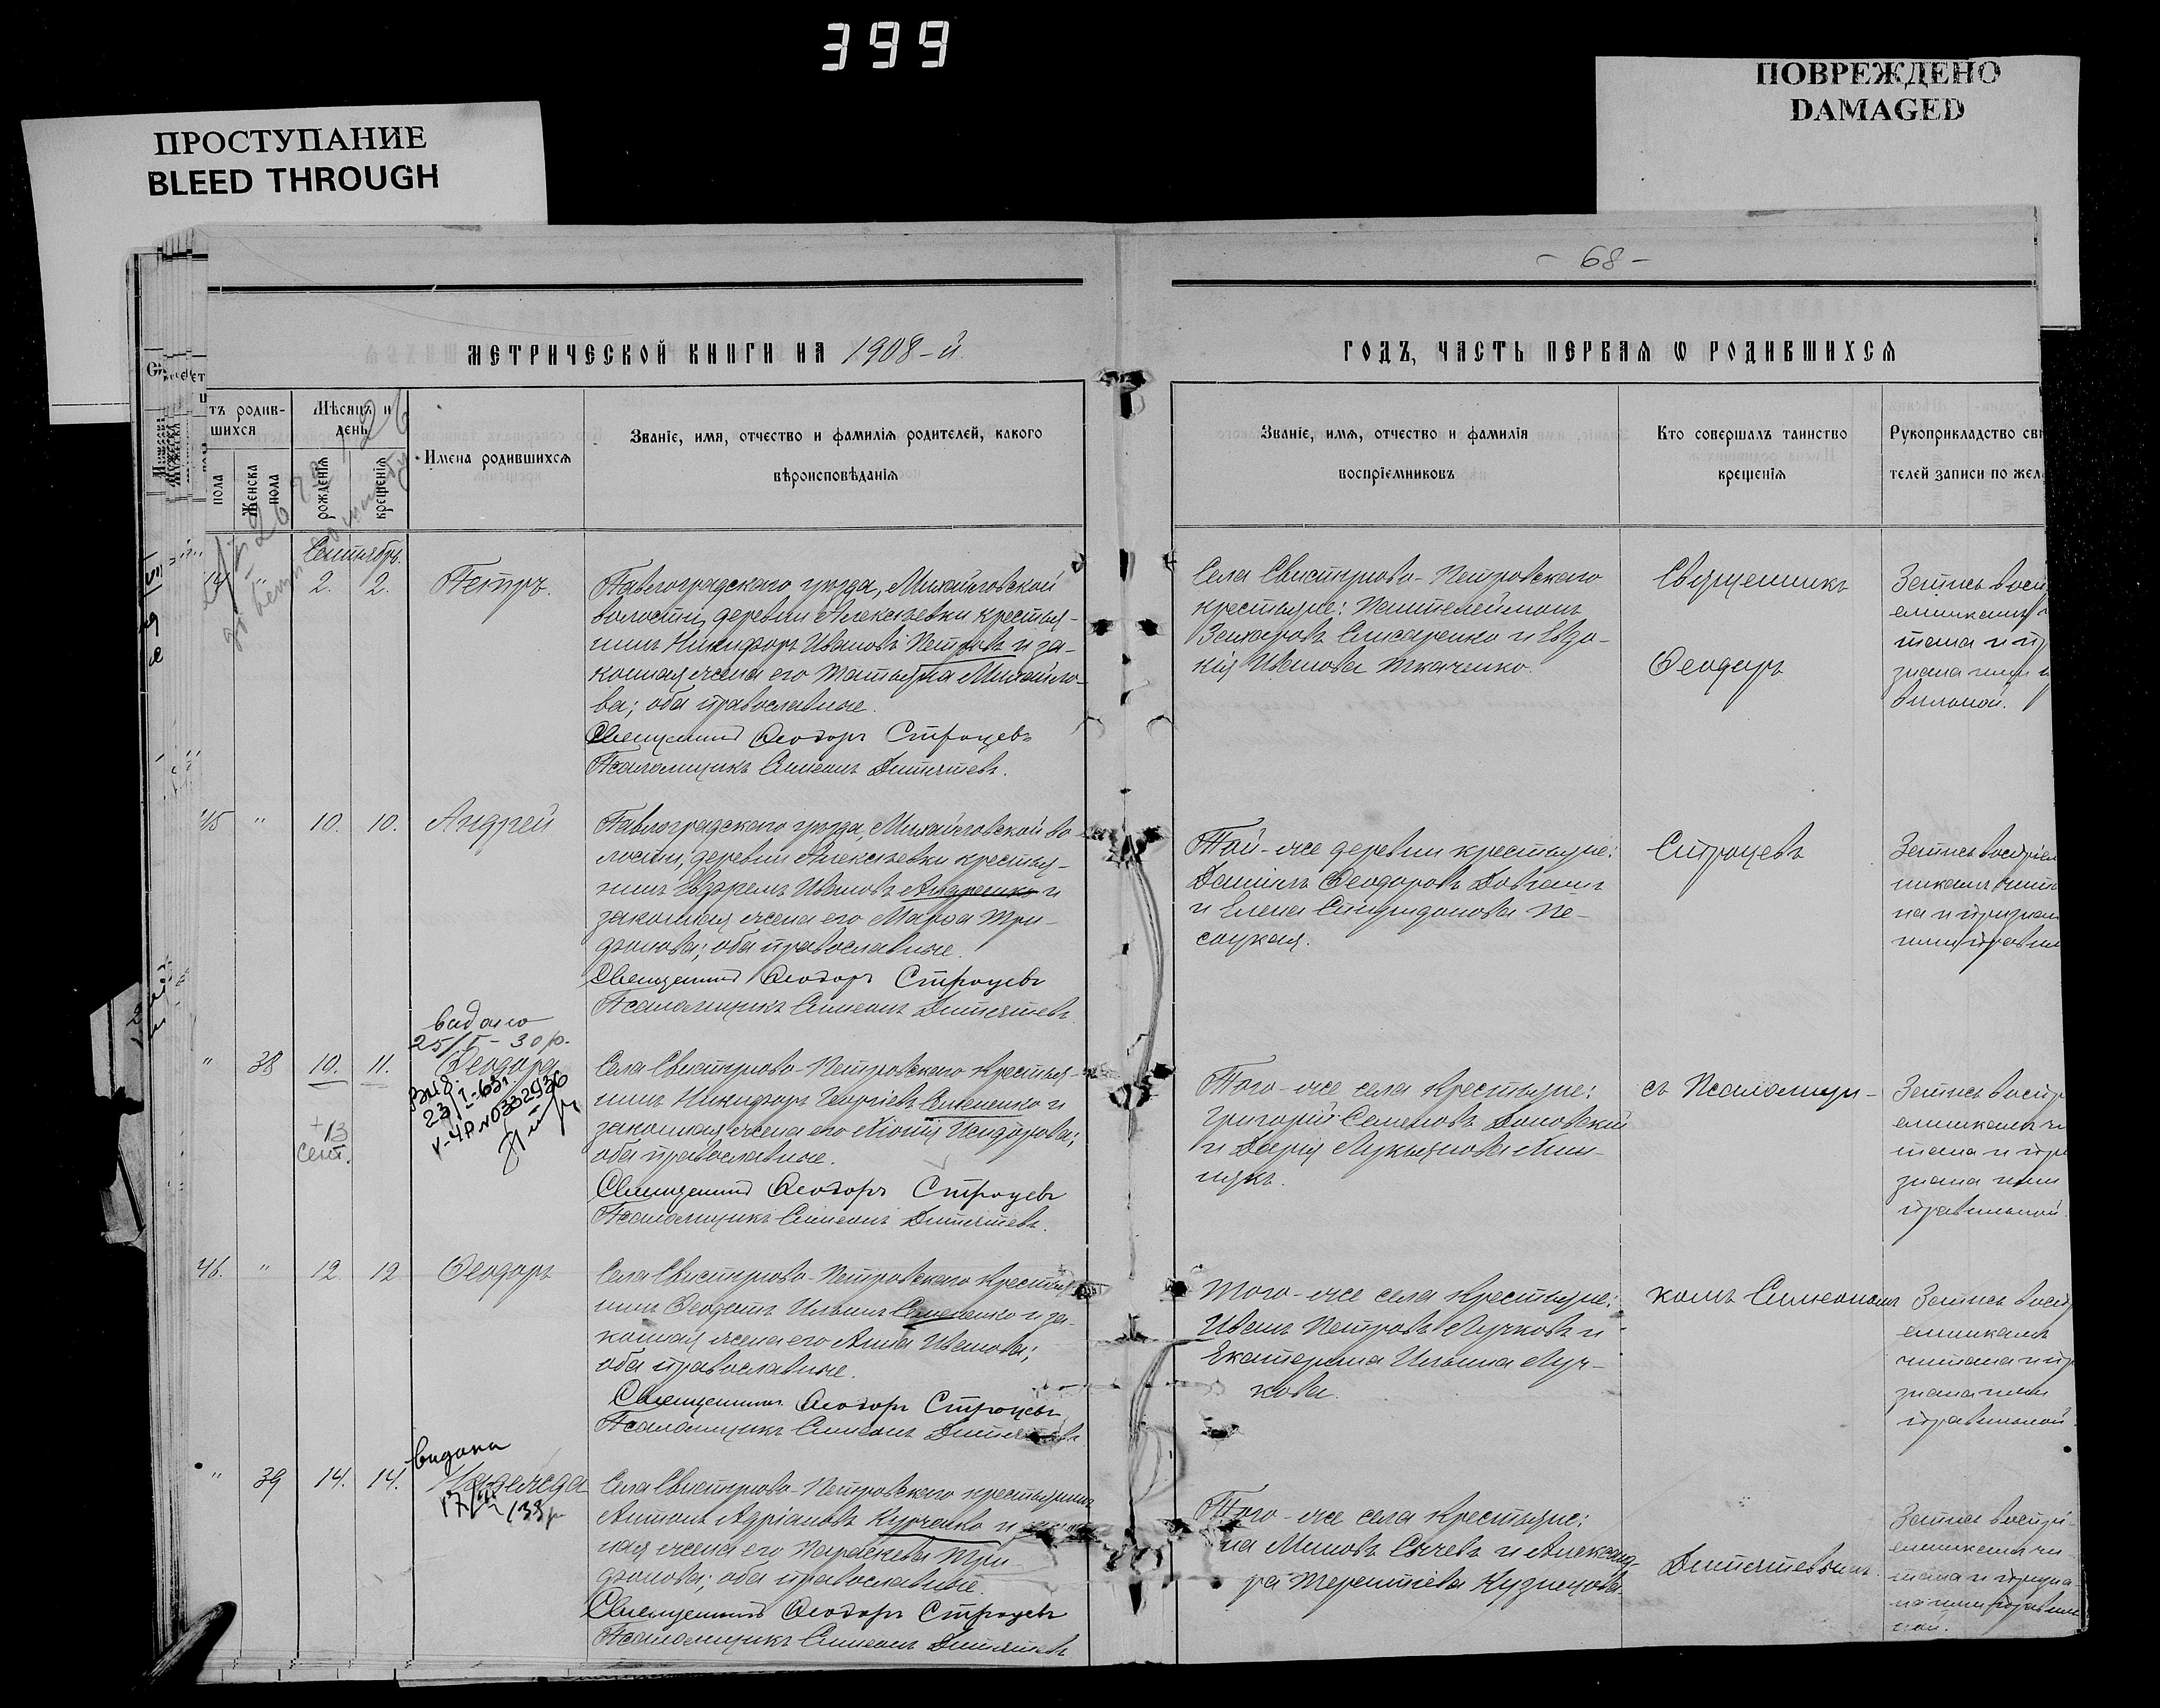 399
ПРОСТУПАНИЕ
BLEED THROUGH
ПОВРЕЖДЕНО
DAMAGED
- 68 -
МЕТРИЧЕСКОЙ КНИГИ НА 1908-й
ГОДЪ, ЧАСТЬ ПЕРВАЯ Ѡ РОДИВШИХСЯ
тъ родив-
шихся
пола
Женска
пола
Мѣсяцъ и
день
рожденія
крещенія
Имена родившихся
Званіе, имя, отчество и фамилія родителей, какого
вѣроисповѣданія
Званіе, имя, отчество и фамилія
воспріемниковъ
Кто совершалъ таинство
крещенія
Рукоприкладство сви
телей записи по жел
Сентябрь
44 " 2. 2. Петръ.
Павлоградскаго уѣзда, Михайловской
волости, деревни Алексѣевки крестья-
нинъ Никифоръ Ивановъ Петровъ и за-
конная жена его Татьяна Михайло-
ва; оба православные.
Священникъ Ѳеодоръ Строцевъ
Псаломщикъ Симеонъ Дитятевъ.
Села Свистуново-Петровскаго
крестьяне: Пантелеймонъ
Захаровъ Слисаренко и Евдо-
кія Иванова Ткаченко.
Священникъ
Ѳеодоръ
Запись восп
емникамъ
тана и пр
знана ими
вильной.
45 " 10. 10. Андрей
Павлоградскаго уѣзда, Михайловской во-
лости, деревни Алексѣевки крестья-
нинъ Евфремъ Ивановъ Андреенко и
законная жена его Марѳа Три-
фонова; оба православные.
Священникъ Ѳеодоръ Строцевъ
Псаломщикъ Симеонъ Дитятевъ
Той-же деревни крестьяне:
Даніилъ Ѳеодоровъ Довгань
и Елена Спиридонова Пе-
соцкая.
Строцевъ
Запись воспріем
никамъ чита
на и признан
ими правил
видано
25/I - 30 р.
" 38 10. 11. Ѳеодора
+ 13
Сент.
23/I-63г.
V-ЧР №0332936
Села Свистуново-Петровскаго крестья-
нинъ Никифоръ Георгіевъ Симененко и
законная жена его Хіонія Исидорова;
оба православные.
Священникъ Ѳеодоръ Строцевъ
Псаломщикъ Симеонъ Дитятевъ.
Того-же села крестьяне:
Григорій Семеновъ Доновский
и Дарія Лукьянова Хиж-
някъ.
съ Псаломщи-
Запись воспр
емникамъ чи
тана и при
знана ими
правильной
46. " 12 12 Ѳеодоръ
Села Свистуново-Петровскаго крестья
нинъ Ѳеодотъ Ильинъ Симененко и за-
конная жена его Анна Иванова;
оба православные.
Священникъ Ѳеодоръ Строцевъ
Псаломщикъ Симеонъ Дитятевъ
Того-же села крестьяне:
Иванъ Петровъ Лучковъ и
Екатерина Ильина Луч-
кова.
комъ Симеономъ
Запись восп
емникамъ
читана и пр
знана ими
правильной.
видана
" 39 14. 14. Надежда
Села Свистуново-Петровскаго крестьянинъ
Антонъ Адріановъ Курченко и
ная жена его Параскева Три-
фонова; оба православные.
Священникъ Ѳеодоръ Строцевъ
Псаломщикъ Симеонъ Дитятевъ
Того-же села крестьяне:
на Миновъ Сычевъ и Александ-
ра Терентіева Кузнецова
Дитятевымъ.
Запись воспрі-
емникамъ чи-
тана и призна-
на ими правиль
ной.